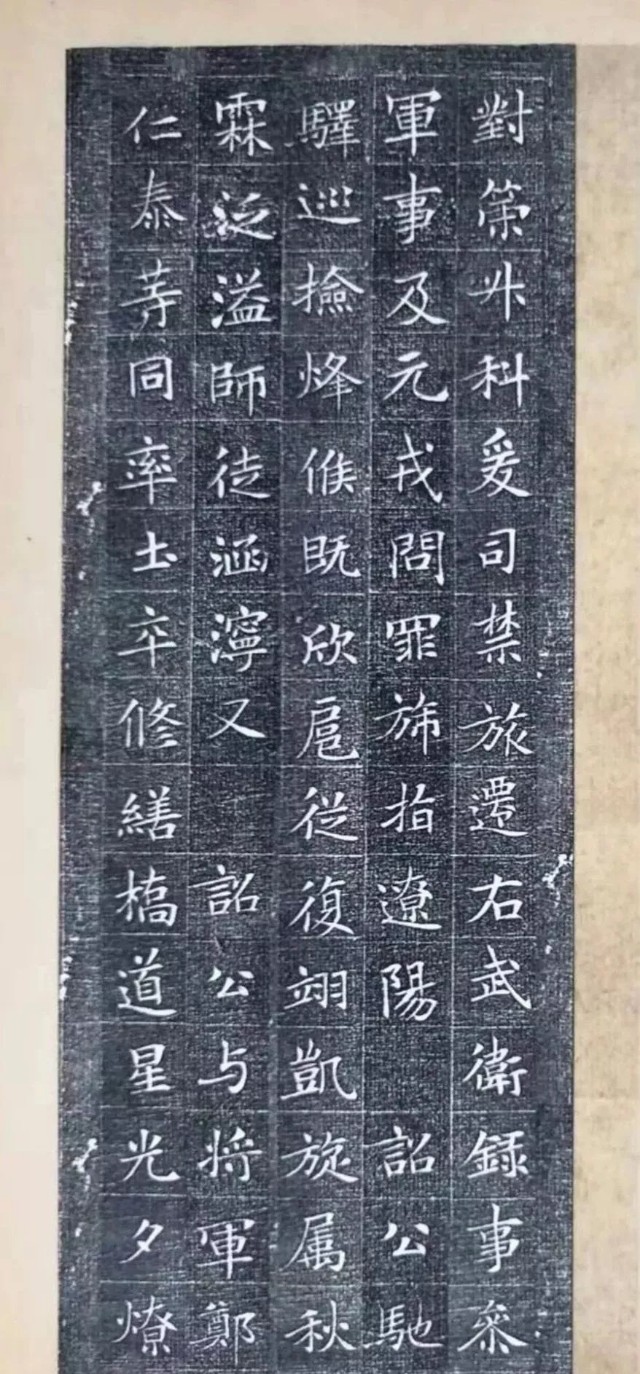 對策升科爰司禁旅遷右武衛録事叅
軍事及元戎問罪斾指遼陽 詔公馳
驛巡撿烽候既欣扈從復翊凱旋属秋
霖泛溢師徒涵濘又 詔公与將軍鄭
仁泰等同率士卒修繕橋道星光夕燎